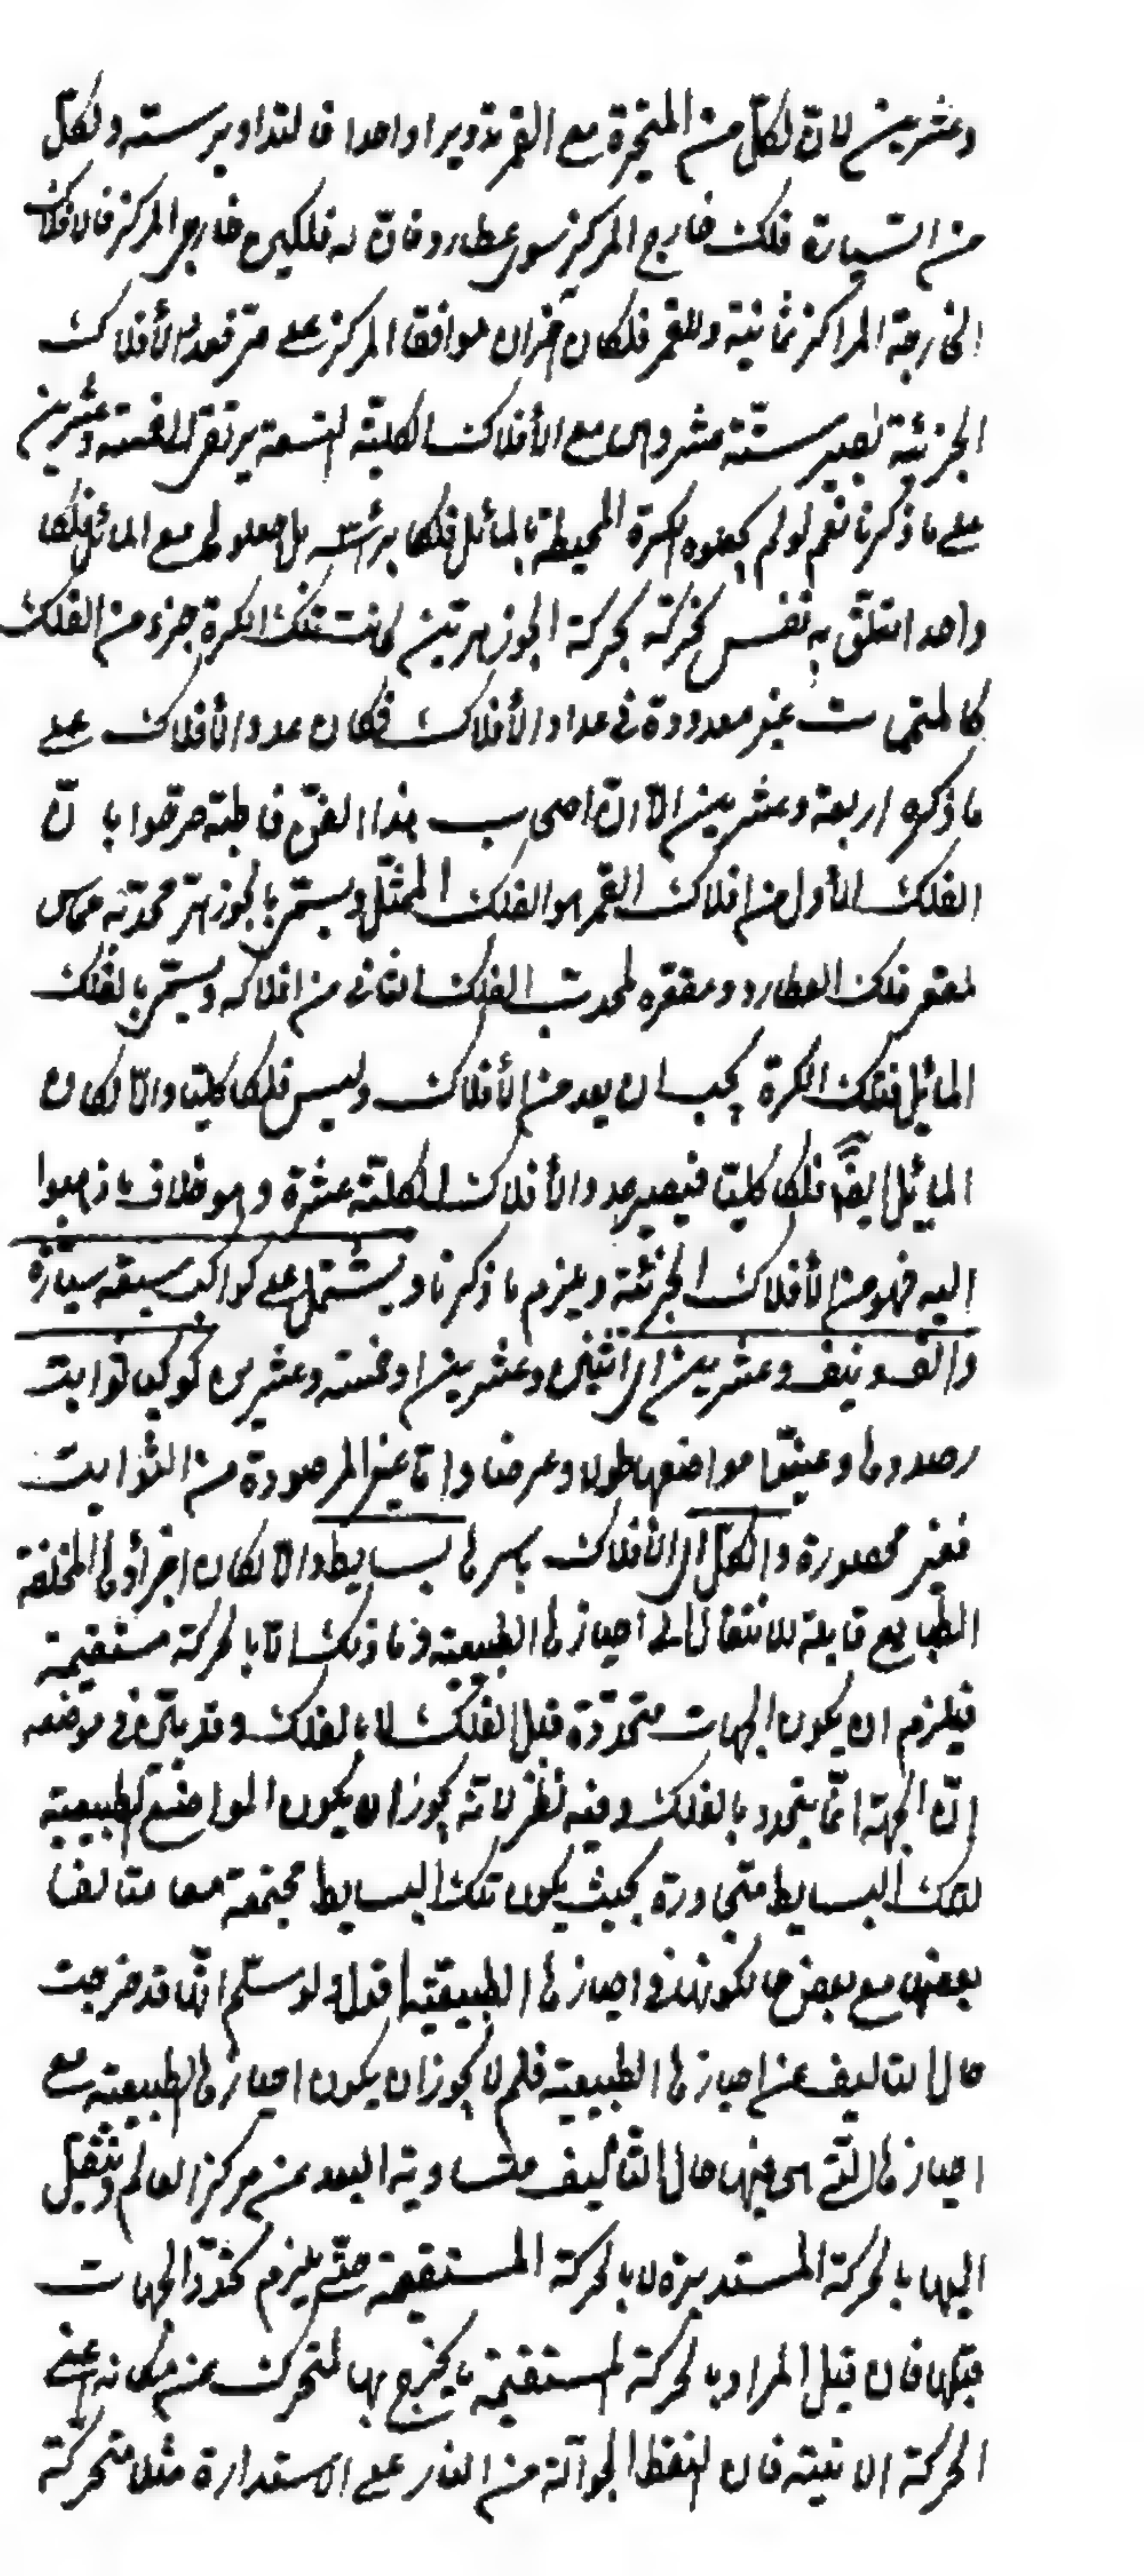 وعشرين لانّ لكلّ من المتحيّرة مع القمر تدويرا واحدا فالتداوير ستة ولكلّ
من السّيارة فلك خارج المركز سوى عطارد فانّ له فلكين خارجى المركز فالافلاك
الخارجة المراكز ثمانية وللقمر فلكان آخران موافقا المركز على مرّ فعدد الأفلاك
الجزئية تصير ستّة عشر وهى مع الأفلاك الكليّة التسعة يرتقى الى خمسة وعشرين
على ما ذكرنا نعم لو لم يجعلوه الكرة المحيطة بالمائل فلكا برأسه بل جعلوها مع المائل فلكا
واحدا تتعلّق به نفس تحركه بحركة الجوزهرين كانت تلك الكرة جزء من الفلك
كالمتممات غير معدودة فى عداد الأفلاك فكان عدد الأفلاك على
ما ذكره اربعة وعشرين الّا انّ اصحاب هذا الفنّ قاطبة صرّحوا بانّ
الفلك الأول من افلاك القمر هو الفلك الممثّل ويسمّى بالجوزهر محدّبه مماس
لمقعر فلك العطارد ومقعّره لمحدّب الفلك الثانى من افلاكه ويسمّى بالفلك
المائيل فتلك الكرة يجب ان يعد من الأفلاك وليس فلكا كليّا والّا لكان
المائيل ايضا فلكا كليّا فيصير عدد الأفلاك الكليّة عشرة وهو خلاف ما ذهبوا
اليه فهو من الأفلاك الجزئيّة ويلزم ما ذكرنا ويشتمل على كواكب سبعة سيّارة
والف ونيف وعشرين اى اثنين وعشرين او خمسة وعشرين كوكبا ثوابت
رصدوها وعيّنوا مواضعها طولا وعرضا وامّا غير المرصودة من الثوابت
فغير محصورة والكلّ اى الأفلاك باسرها بسايط والا لكان اجزاؤها المختلفة
الطبايع قابلة للانتقال الى احيازها الطبيعية وما ذلك الّا بالحركة مستقيمة
فيلزم ان يكون الجهات متحدّدة قبل الفلك لا بالفلك وقد بيّن فى موضعه
انّ الجهة انّما يتحدد بالفلك وفيه نظر لانّه يجوز ان يكون المواضع الطبيعية
لتلك البسايط متجاورة بحيث يكون تلك البسايط مجتمعة معا متالفا
بعضها مع بعض حال كونها فى احيازها الطبيعيّة اقول ولو سلّم انّها قد خرجت
حال التاليف عن احيازها الطبيعية فلم لا يجوز ان يكون احيازها الطبيعية مع
احيازها الّتى هى فيها حال التأليف متساوية البعد عن مركز العالم وتنتقل
اليها بالحركة المستديرة لا بالحركة المستقيمة حتّى يلزم تحدّد الجهات
قبلها فان قيل المراد بالحركة المستقيمة ما يخرج بها المتحرك عن مكانه اعنى
الحركة الاينية فان النقطة الجوالة من النار على الاستدارة مثلا متحركة